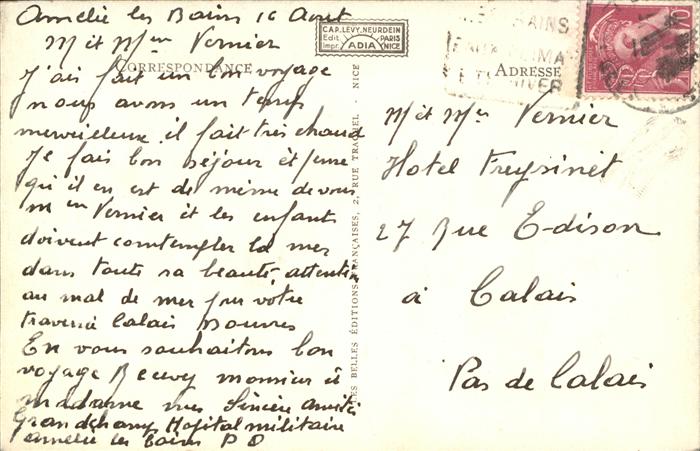 Amélie les Bains 16 Aout
M et Mme Vernier
CORRESPONDANCE
J'ais fait un bon voyage
nous avons un temps
merveilleux il fait très chaud
Je fais bon séjour et pense
qu'il en est de même de vous
Mme Vernier et les enfants
doivent comtempler la mer
dans toute sa beauté, attention
au mal de mer pour votre
traversé Calais Douvres
En vous souhaitons bon
voyage Recevez monsieur et
madame mes Sincère amitié
Grandchamp Hopital militaire
Amélie les bains P O
CAP. LEVY. NEURDEIN
Edit. PARIS
Impr. ADIA NICE
LES BELLES ÉDITIONS FRANÇAISES, 2, RUE TRACHEL - NICE
BAINS
CLIMA
HIVER
ADRESSE
M et Mme Vernier
Hotel Freysinet
27 Rue Edison
à Calais
Pas de Calais